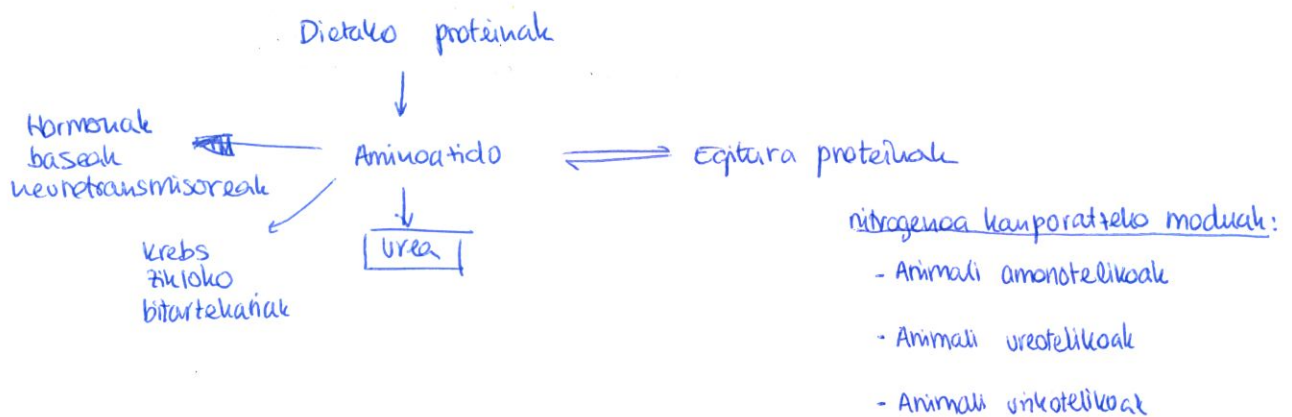 Dietako proteinak
Hormonak
baseak
neurotransmisoreak
Aminoatido
Egitura proteinak
urea
Krebs
zikloko
bitartekariak
nitrogenoa kanporatzeko moduak:
- Animali amonotelikoak
- Animali ureotelikoak
- Animali urikotelikoak